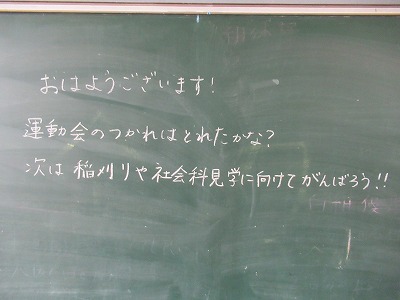 おはようございます!
運動会のつかれはとれたかな?
次は稲刈りや社会科見学に向けてがんばろう!!